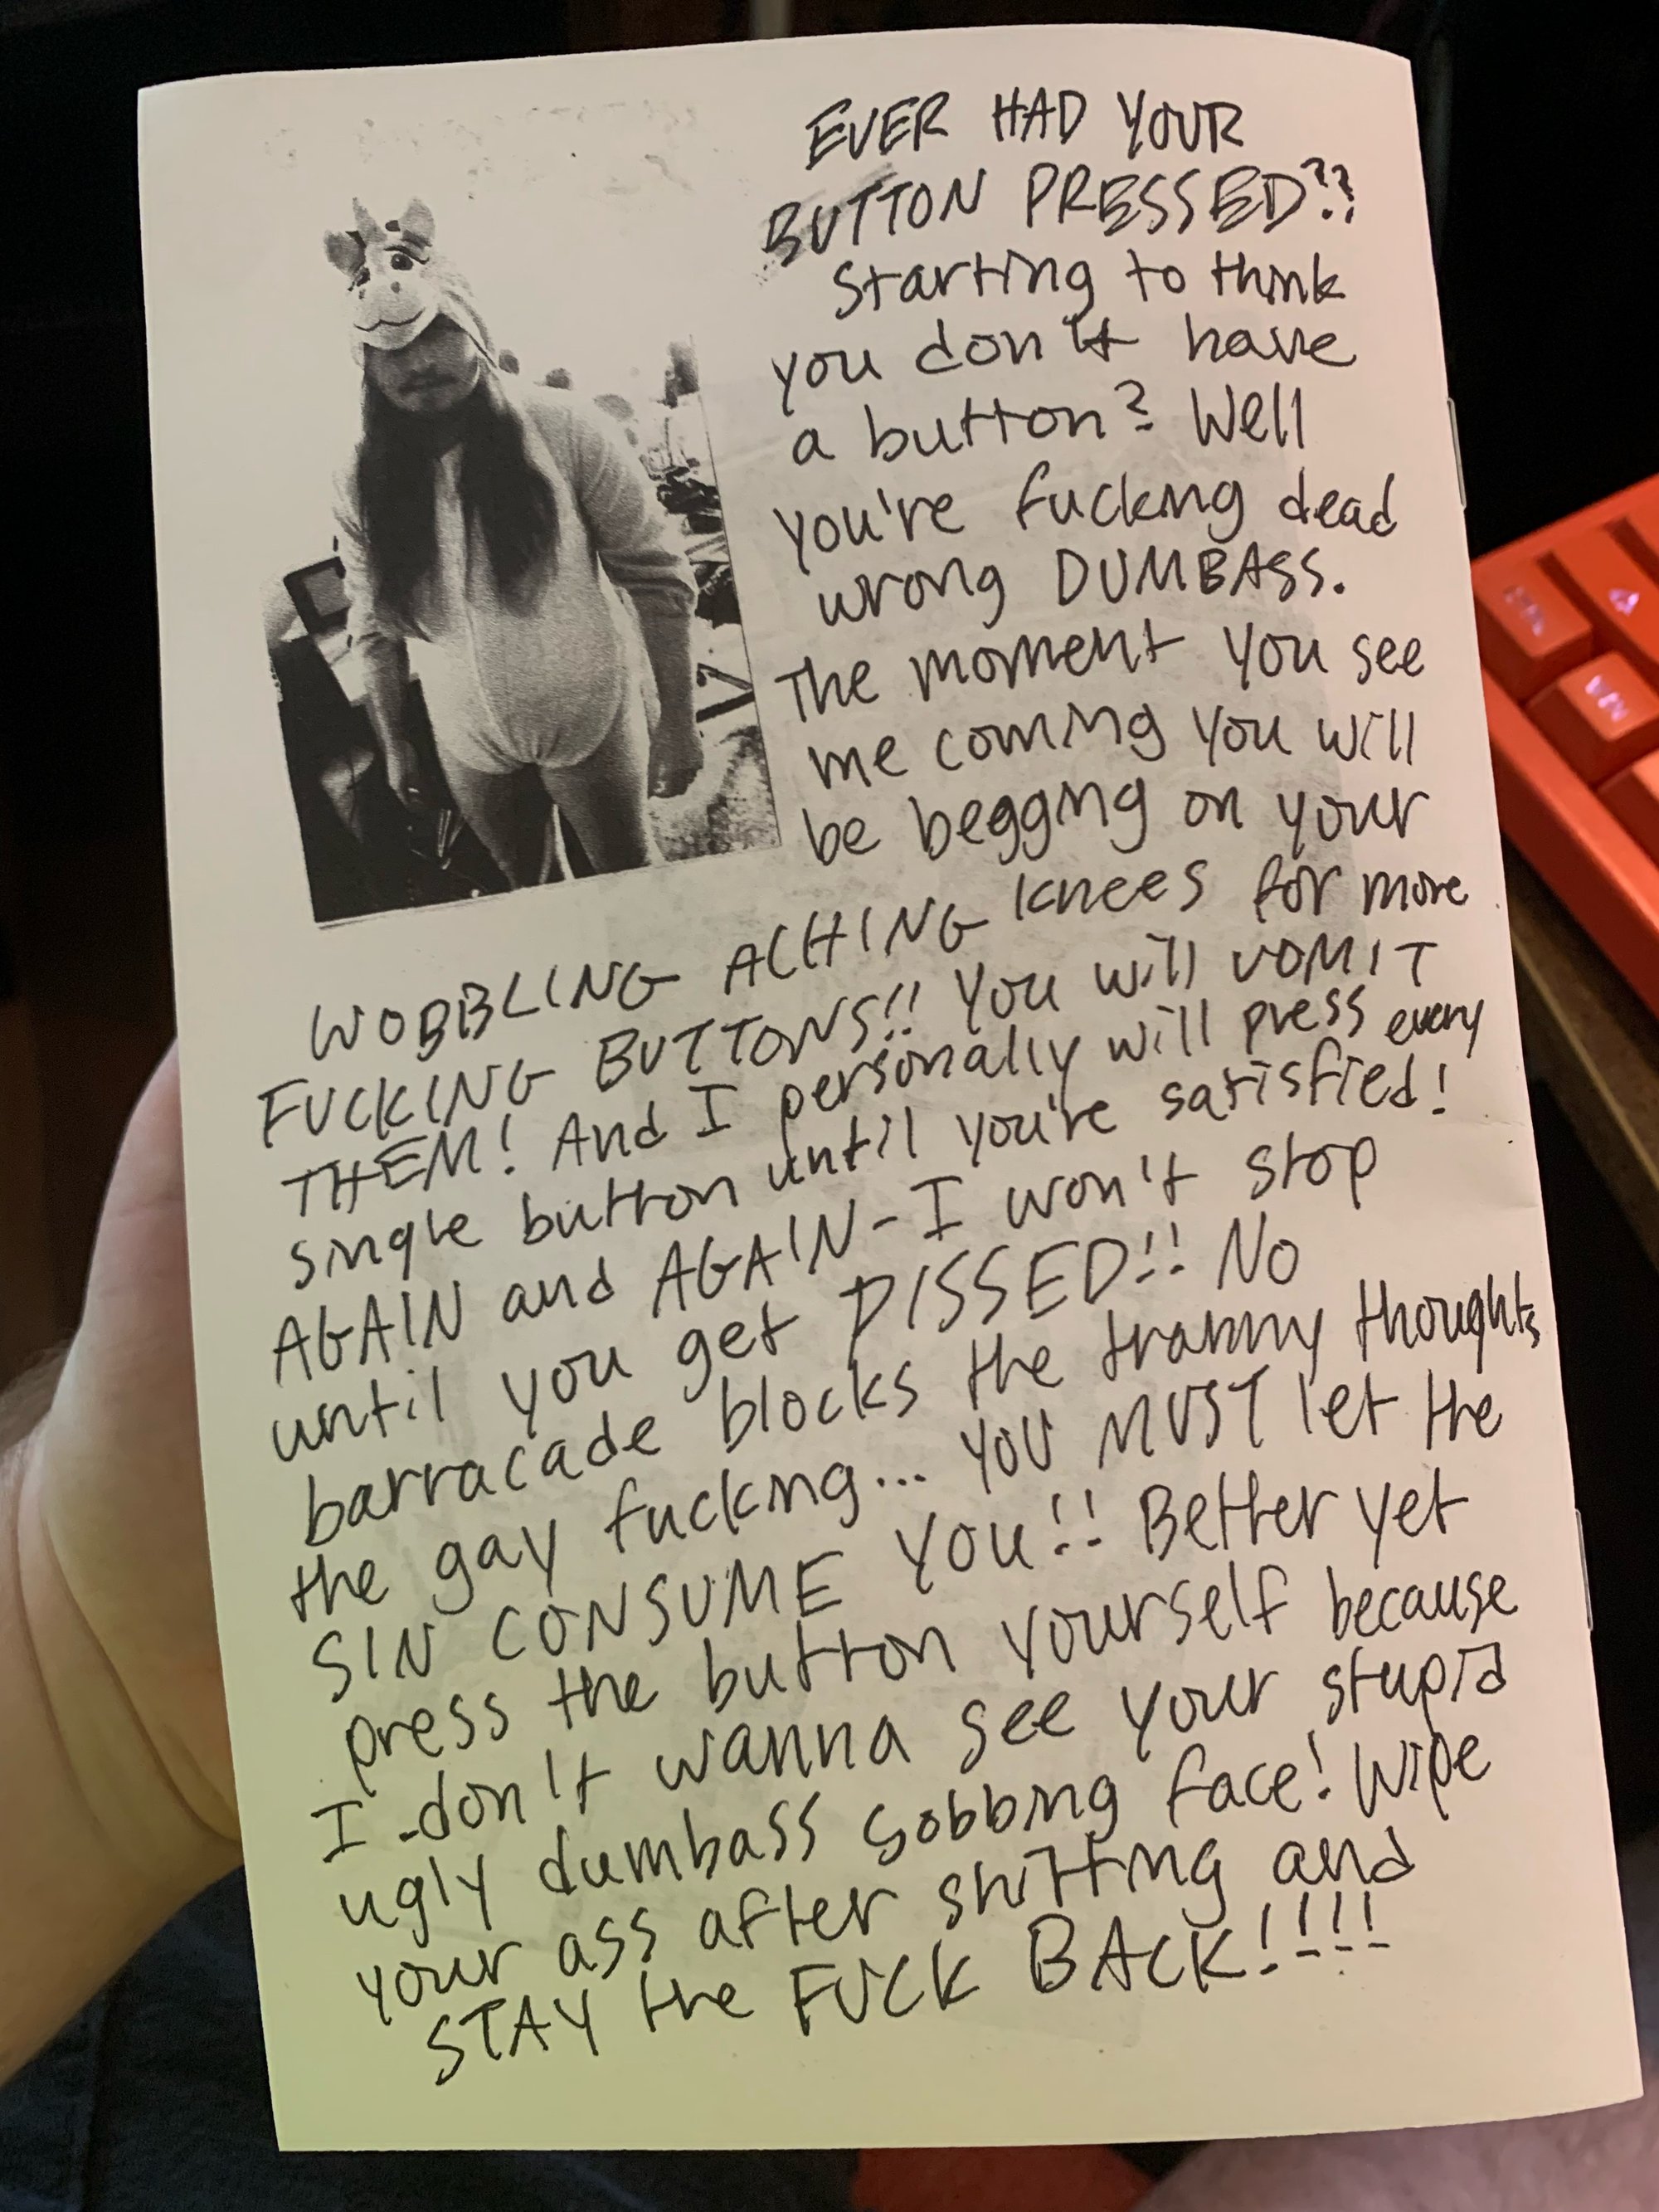 EVER HAD YOUR
BUTTON PRESSED??
Starting to think
you don't have
a button? Well
you're fucking dead
wrong DUMBASS.
The moment you see
me coming you will
be begging on your
WOBBLING ACHING knees for more
FUCKING BUTTONS!! You will VOMIT
THEM! And I personally will press every
single button until you're satisfied!
AGAIN and AGAIN - I won't stop
until you get PISSED!! No
barracade blocks the tranny thoughts
the gay fucking... you MUST let the
SIN CONSUME YOU!! Better yet
press the button yourself because
I don't wanna see your stupid
ugly dumbass sobbing face! Wipe
your ass after shitting and
STAY the FUCK BACK!!!!